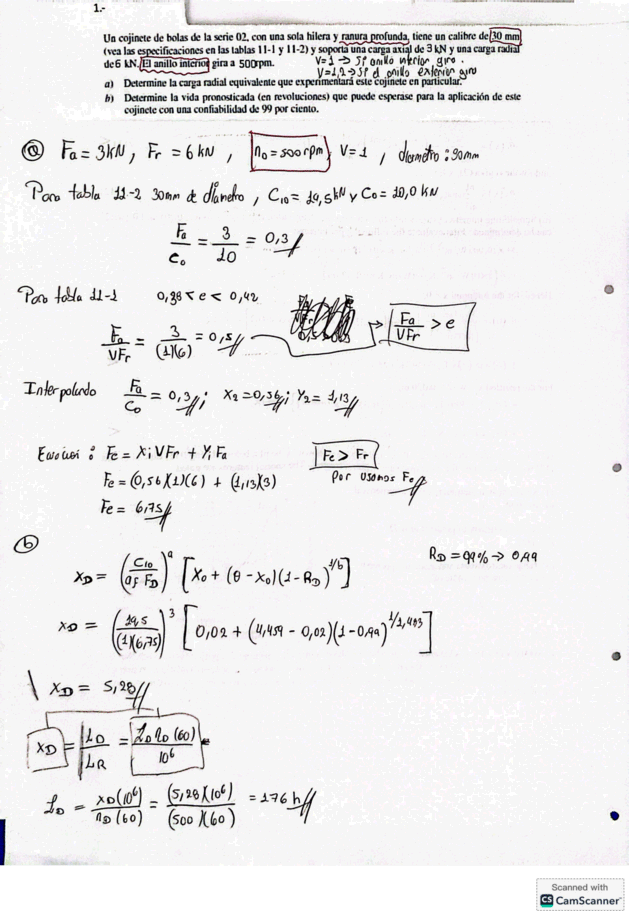 1.-
Un cojinete de bolas de la serie 02, con una sola hilera y ranura profunda, tiene un calibre de 30 mm
(vea las especificaciones en las tablas 11-1 y 11-2) y soporta una carga axial de 3 kN y una carga radial
de 6 kN. El anillo interior gira a 500rpm. V=1 → si anillo interior giro.
V=1,2 → si el anillo exterior giro
a) Determine la carga radial equivalente que experimentará este cojinete en particular.
b) Determine la vida pronosticada (en revoluciones) que puede esperarse para la aplicación de este
cojinete con una confiabilidad de 99 por ciento.
a) Fa = 3kN, Fr = 6 kN, n0 = 500 rpm, V=1, diametro: 30mm
Para tabla 11-2 30mm de diametro, C10 = 19,5 kN y C0 = 10,0 kN
Fa/C0 = 3/10 = 0,3
Para tabla 11-1 0,38 < e < 0,42
Fa/VFr = 3/(1)(6) = 0,5 → Fa/VFr > e
Interpolando Fa/C0 = 0,3; X2 = 0,56; Y2 = 1,13
Ecuacion: Fe = Xi VFr + Yi Fa Fe > Fr
Fe = (0,56)(1)(6) + (1,13)(3) Por usamos Fe
Fe = 6,75
b) RD = 99% → 0,99
XD = (C10/af FD)^a [X0 + (θ - X0)(1 - RD)^1/b]
XD = (19,5/(1)(6,75))^3 [0,02 + (4,459 - 0,02)(1 - 0,99)^1/1,483]
XD = 5,28
XD = LD/LR = LD nD (60)/10^6
LD = XD(10^6)/nD(60) = (5,28)(10^6)/(500)(60) = 176 h
Scanned with
CS CamScanner